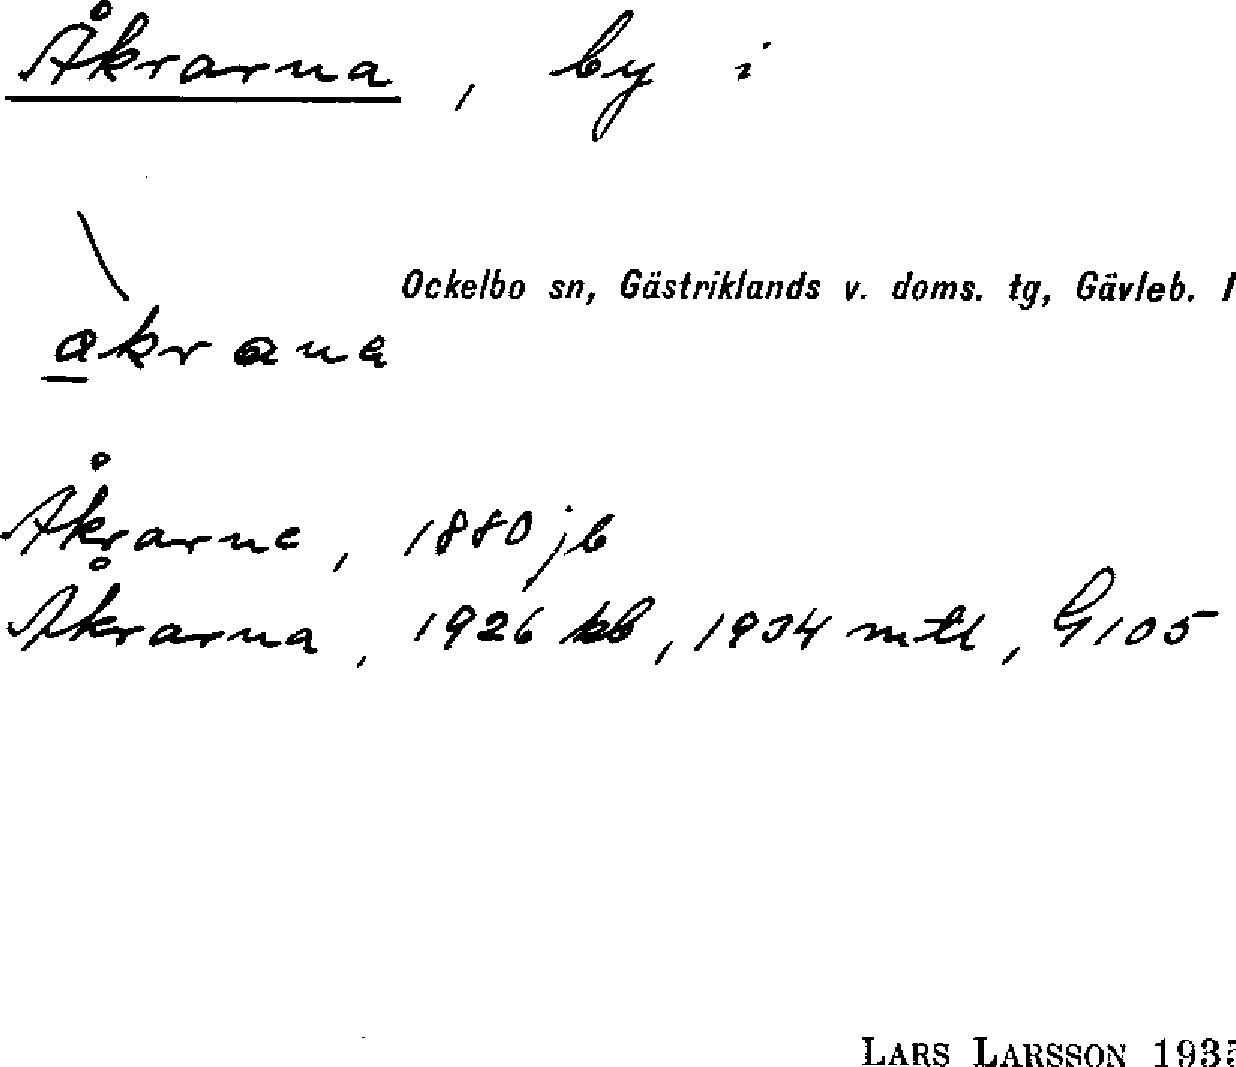 Åkrarna, by i
Ockelbo sn, Gästriklands v. doms. tg, Gävleb. l
akrana
Åkrarne, 1880 jb
Åkrarna, 1926 kb, 1934 mtl, G105
LARS LARSSON 1935